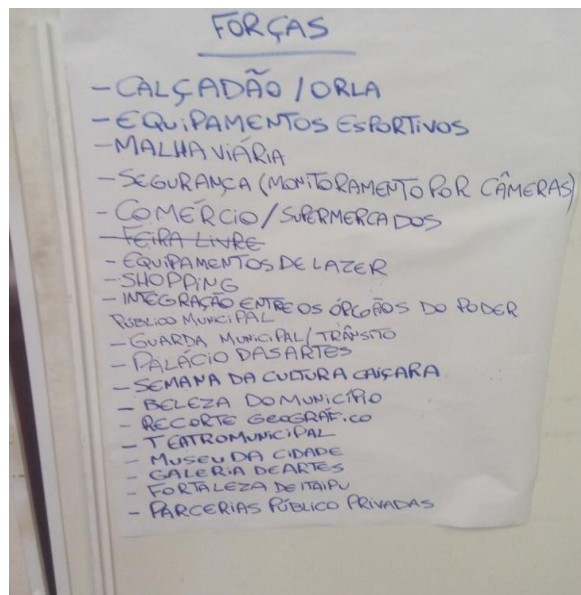 FORÇAS
- CALÇADÃO / ORLA
- EQUIPAMENTOS ESPORTIVOS
- MALHA VIÁRIA
- SEGURANÇA (MONITORAMENTO POR CÂMERAS)
- COMÉRCIO / SUPERMERCADOS
- FEIRA LIVRE
- EQUIPAMENTOS DE LAZER
- SHOPPING
- INTEGRAÇÃO ENTRE OS ÓRGÃOS DO PODER
PÚBLICO MUNICIPAL
- GUARDA MUNICIPAL / TRÂNSITO
- PALÁCIO DAS ARTES
- SEMANA DA CULTURA CAIÇARA
- BELEZA DO MUNICÍPIO
- RECORTE GEOGRÁFICO
- TEATRO MUNICIPAL
- MUSEU DA CIDADE
- GALERIA DE ARTES
- FORTALEZA DE ITAIPU
- PARCERIAS PÚBLICO PRIVADAS